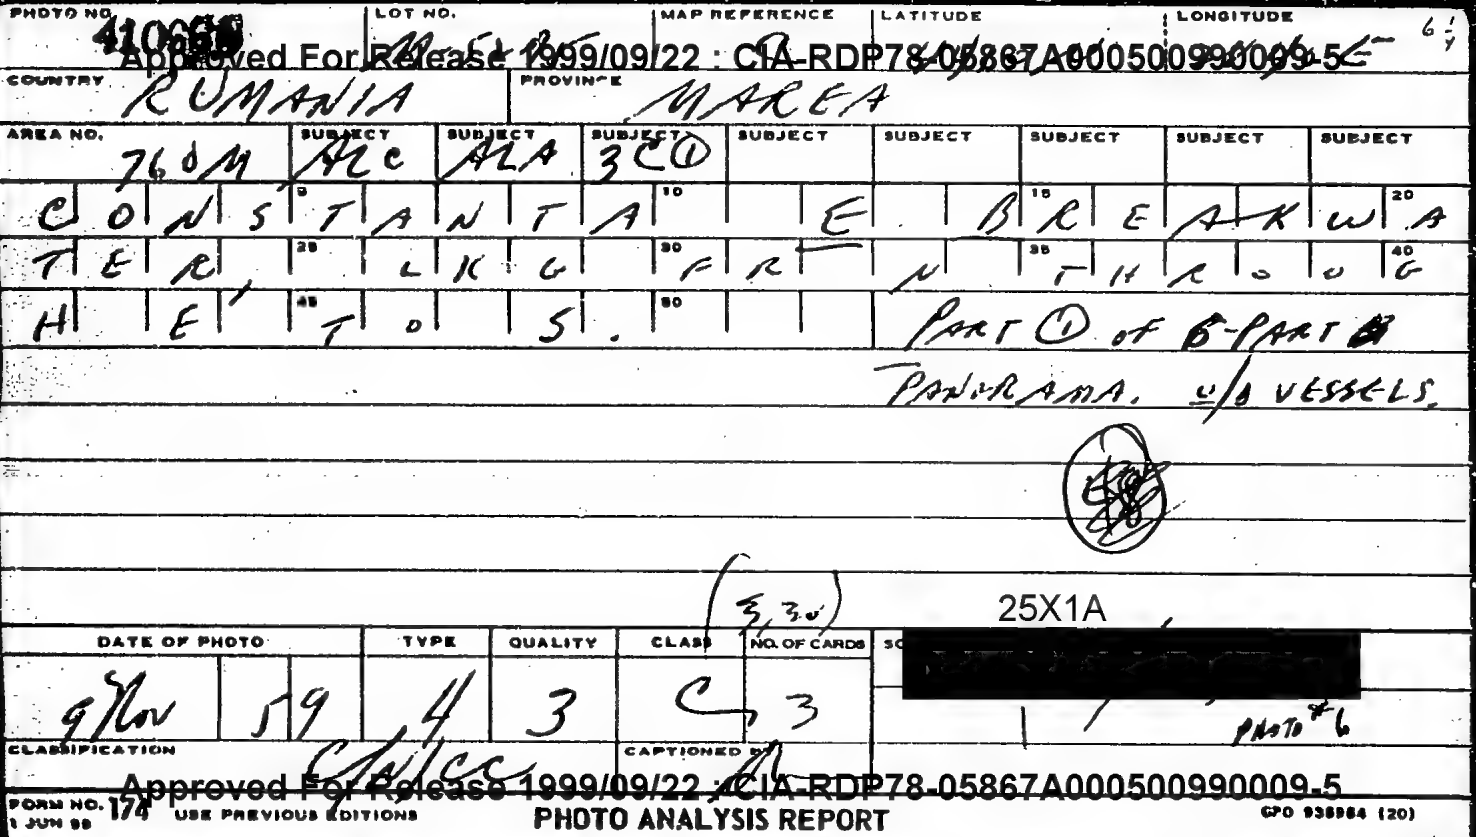 PHOTO NO. LOT NO. MAP REFERENCE LATITUDE LONGITUDE
Approved For Release 1999/09/22 : CIA-RDP78-05867A000500990009-5
COUNTRY RUMANIA PROVINCE MAREA
AREA NO. SUBJECT SUBJECT SUBJECT SUBJECT SUBJECT SUBJECT SUBJECT SUBJECT
760M ALC ALA 3C①
5 10 15 20
CONSTANTA E BREAKWA
25 30 35 40
TER, LKG FR N THROUG
45 50
H E TO S. PART ① OF 5-PART
PANORAMA. U/D VESSELS.
(3,30)
25X1A
DATE OF PHOTO TYPE QUALITY CLASS NO. OF CARDS
9 Nov 59 4 3 C 3
PHOTO #6
CLASSIFICATION CAPTIONED BY
Approved For Release 1999/09/22 : CIA-RDP78-05867A000500990009-5
FORM NO. 174 USE PREVIOUS EDITIONS PHOTO ANALYSIS REPORT GPO 938984 (20)
1 JUN